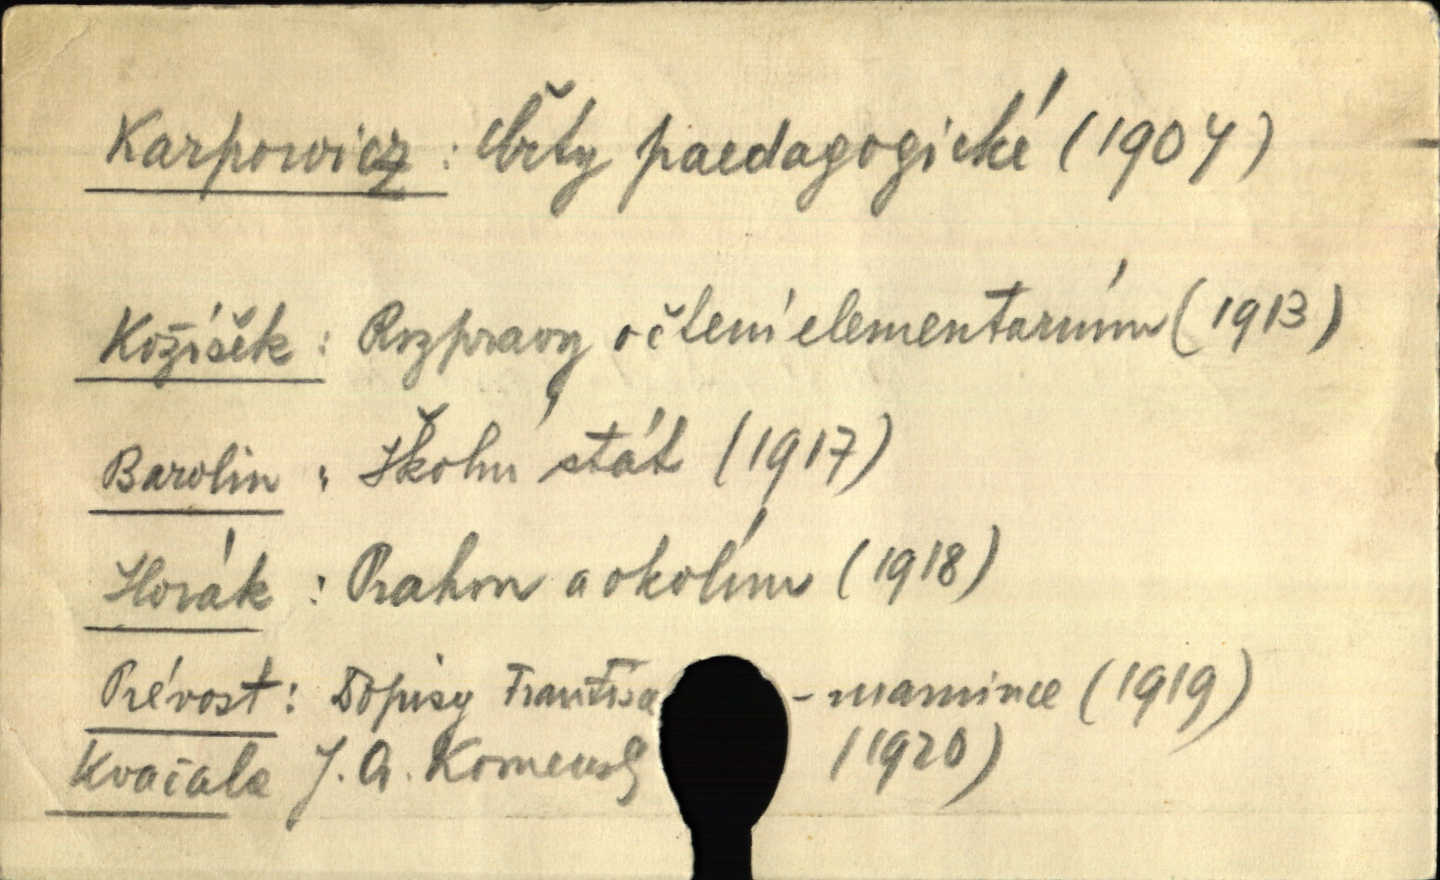 Karpowicz : črty paedagogické (1907)
Kožíšek : Rozpravy o čtení elementárním (1913)
Barolin : Školní stát (1917)
Horák : Prahou a okolím (1918)
Prévost : Dopisy - mamince (1919)
Kvačala J. A. Komenský (1920)